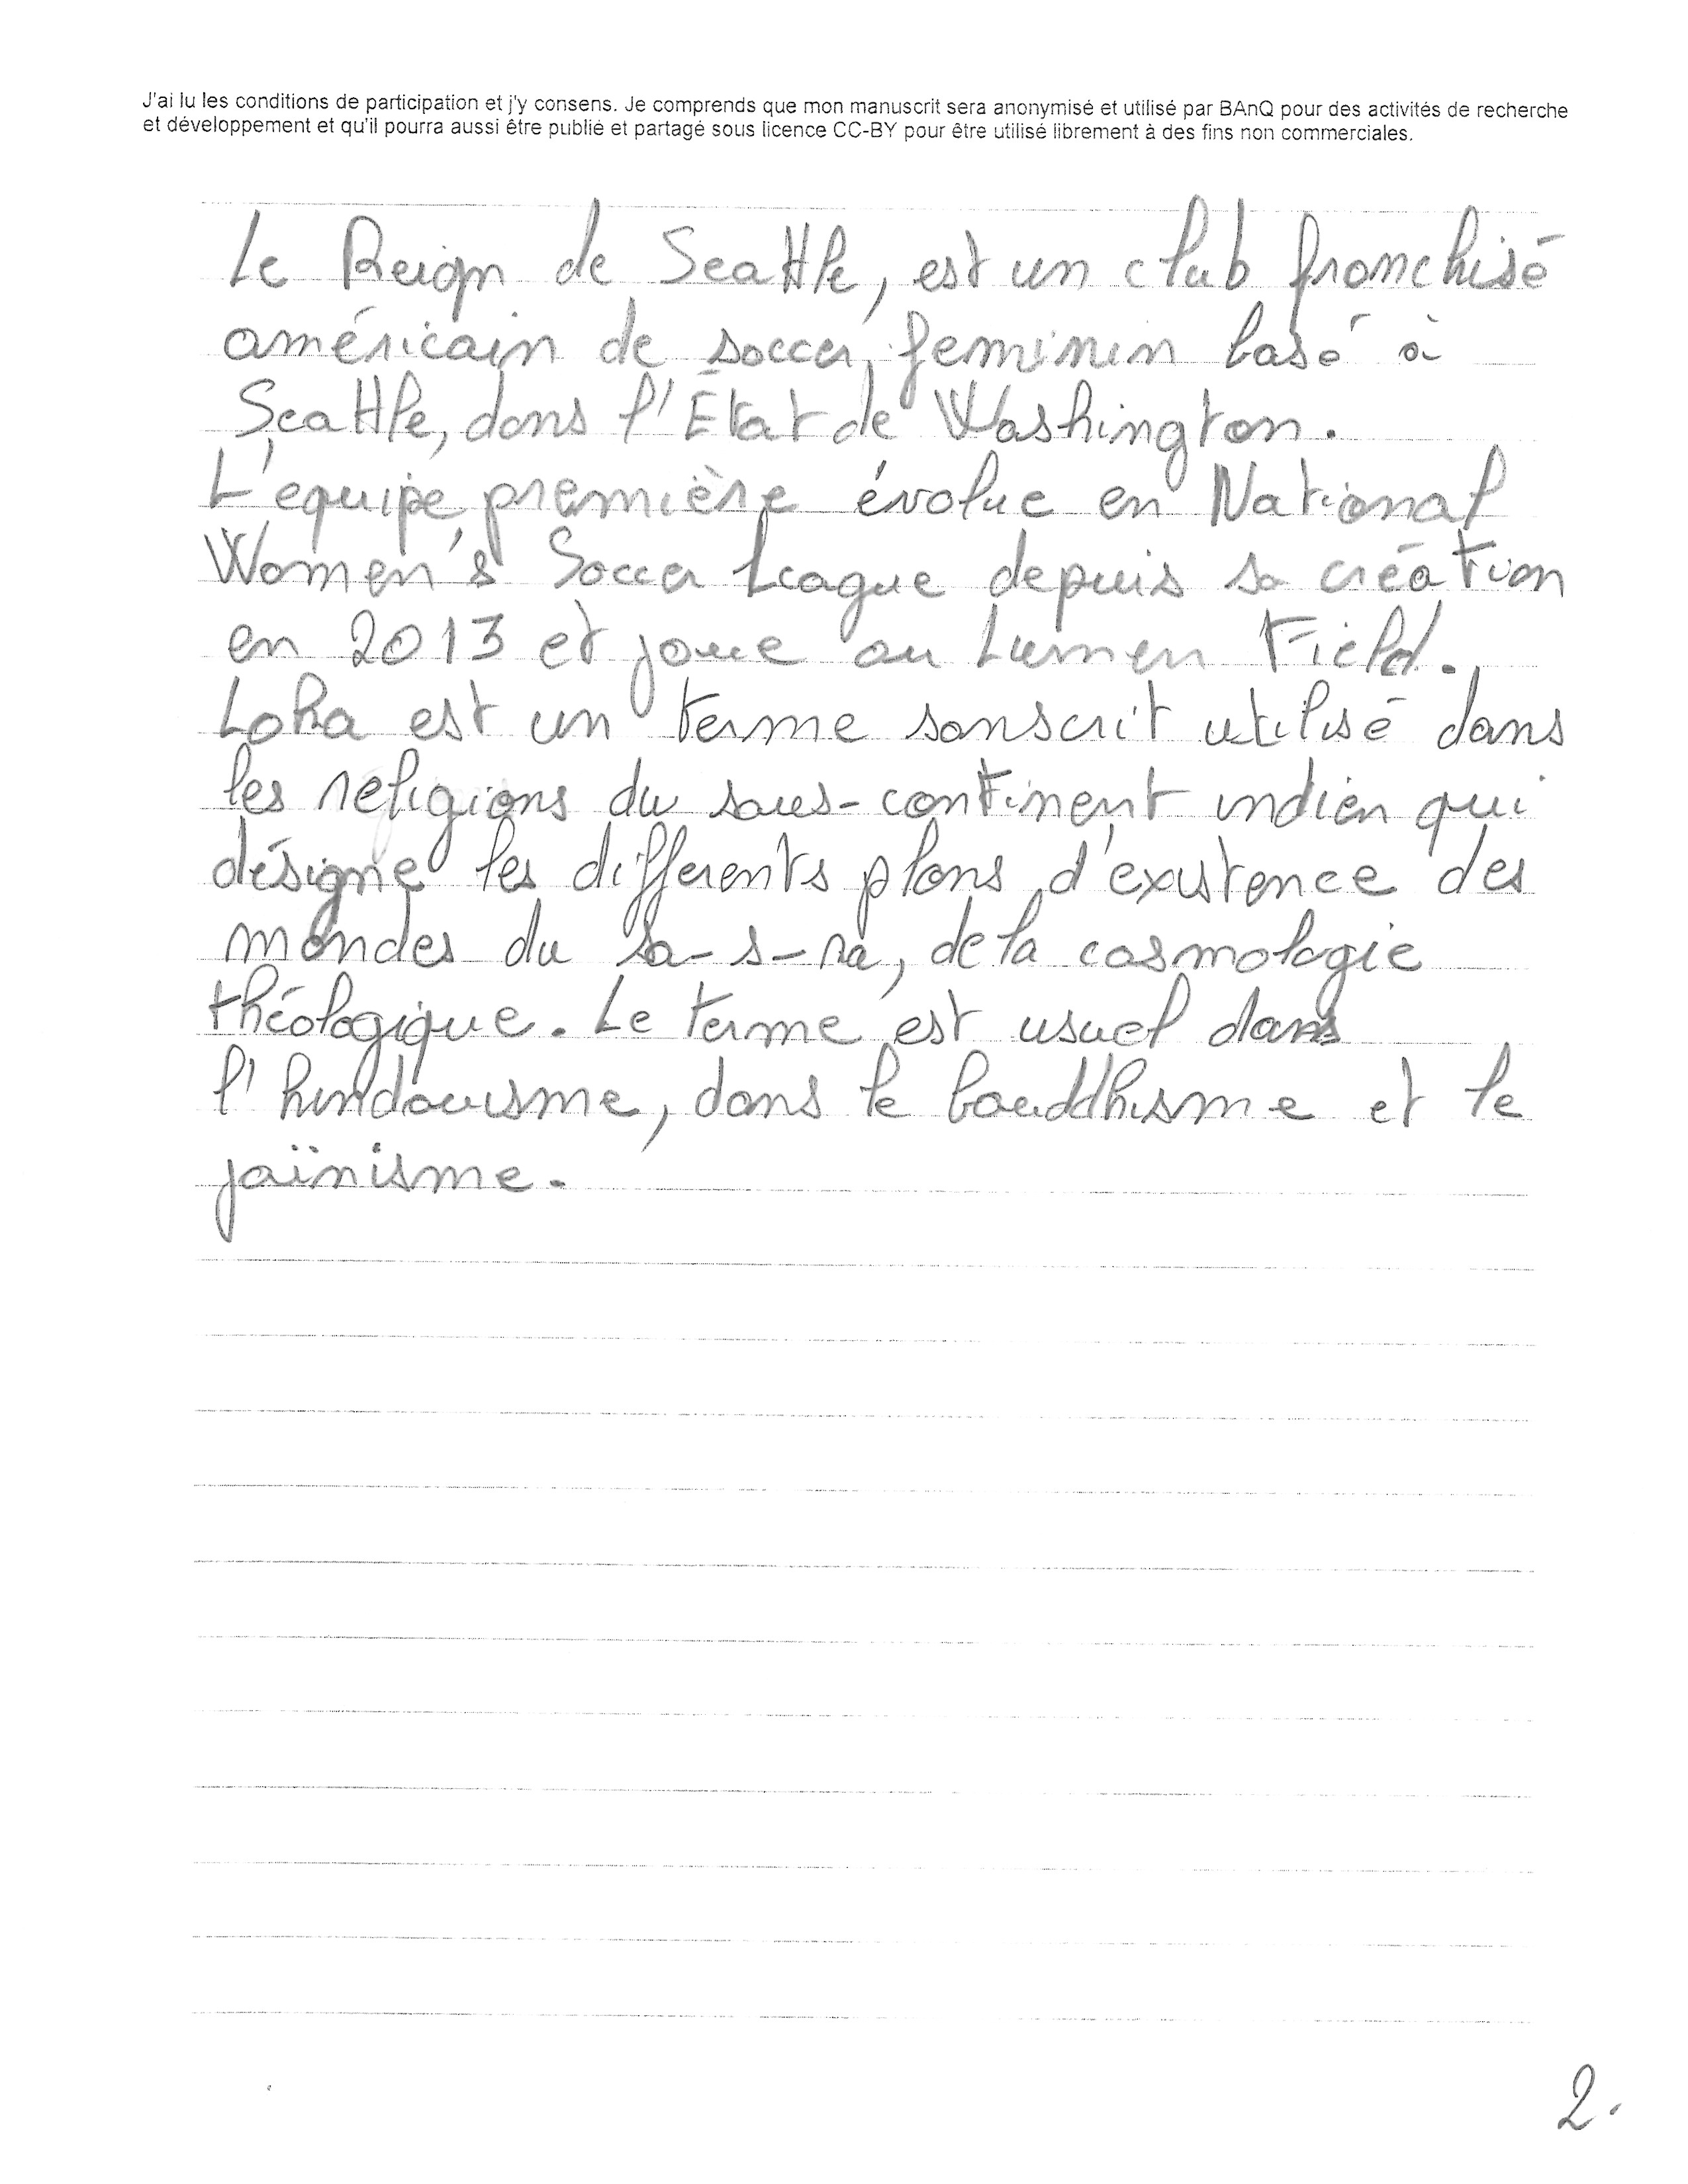 J'ai lu les conditions de participation et j'y consens. Je comprends que mon manuscrit sera anonymisé et utilisé par BAnQ pour des activités de recherche
et développement et qu'il pourra aussi être publié et partagé sous licence CC-BY pour être utilisé librement à des fins non commerciales.
Le Reign de Seattle, est un club franchisé
américain de soccer feminin basé à
Seattle, dans l'État de Washington.
L'equipe première évolue en National
Women's Soccer League depuis sa création
en 2013 et joue au Lumen Field.
Loka est un terme sanscrit utilisé dans
les religions du sous-continent indien qui
désigne les differents plans d'existence des
mondes du sa-s-ra, de la cosmologie
théologique. Le terme est usuel dans
l'hindouisme, dans le bouddhisme et le
jaïnisme.
2.